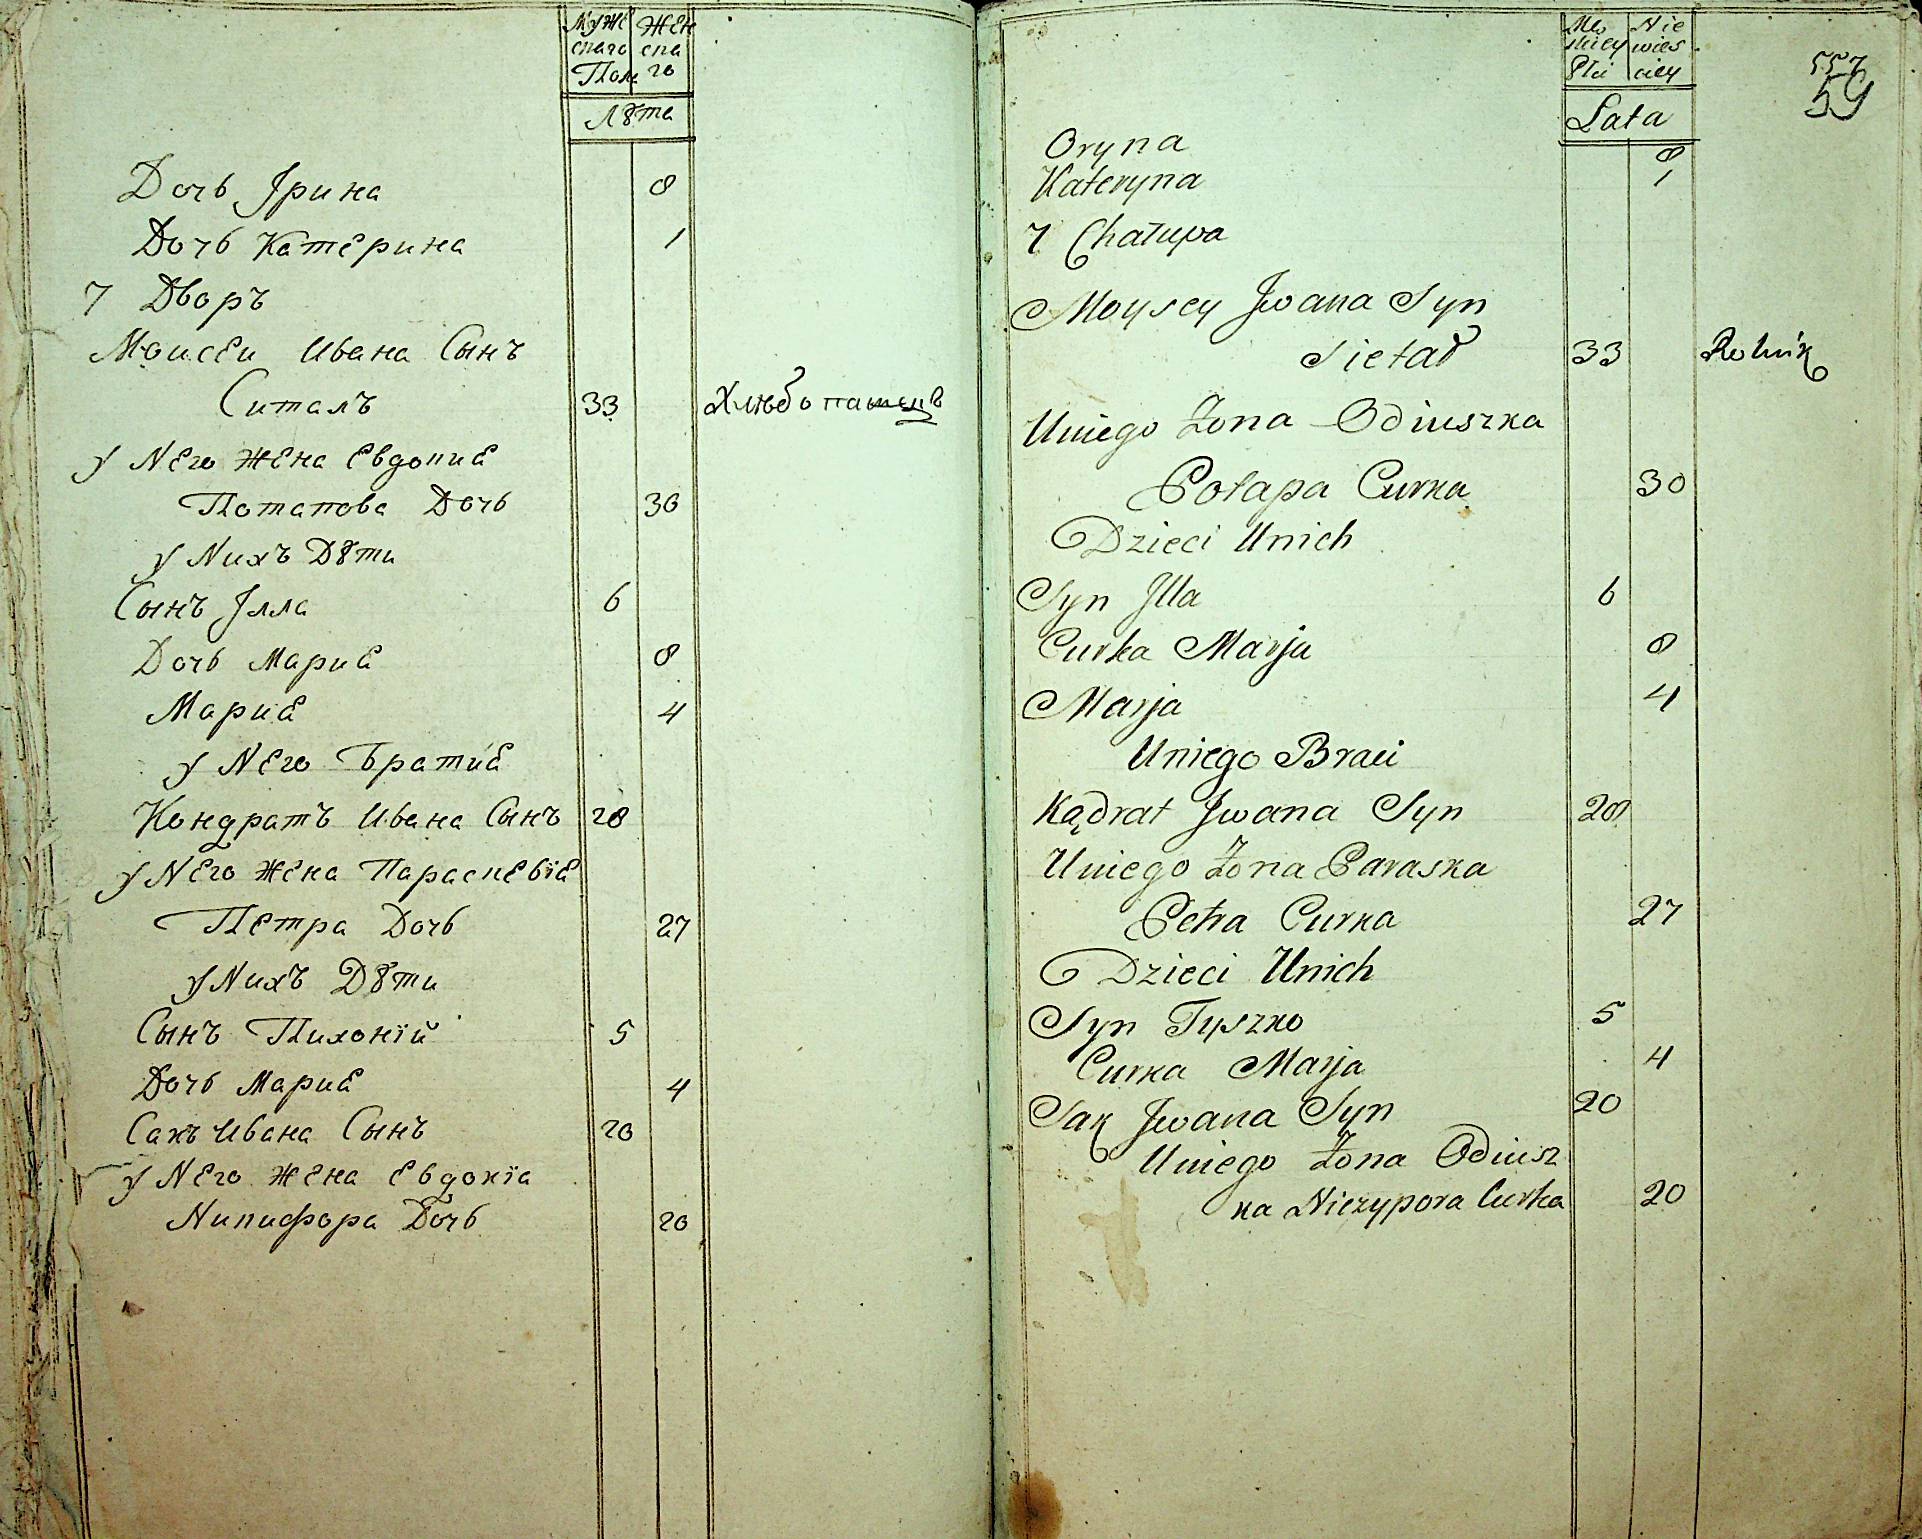 Муже Жен
скаго ска
Полу го
Лѣта
Дочь Ірина 8
Дочь Катерина 1
7 Дворъ
Моисеи Ивана Сынъ
Ситалъ 33 Хлѣбопашецъ
у Него Жена Евдокиѣ
Потапова Дочь 30
у Нихъ Дѣти
Сынъ Ілла 6
Дочь Мариѣ 8
Мариѣ 4
у Него Братиѣ
Кондратъ Ивана Сынъ 28
у Него Жена Параскевіѣ
Петра Дочь 27
у Нихъ Дѣти
Сынъ Тихоній 5
Дочь Мариѣ 4
Сакъ Ивана Сынъ 20
у Него Жена Евдокіа
Никифора Дочь 20
Mę Nie
skiey wies
Płci ciey
Lata
59
Oryna 8
Kateryna 1
7 Chałupa
Moysey Jwana Syn
Sietał 33 Rolnik
Uniego Żona Odiuszka
Potapa Curka 30
Dzieci Unich
Syn Jlla 6
Curka Marja 8
Marja 4
Uniego Braci
Kądrat Jwana Syn 28
Uniego Żona Paraska
Petra Curka 27
Dzieci Unich
Syn Tyszko 5
Curka Marja 4
Sak Jwana Syn 20
Uniego Żona Odiusz
ka Niczypora Curka 20